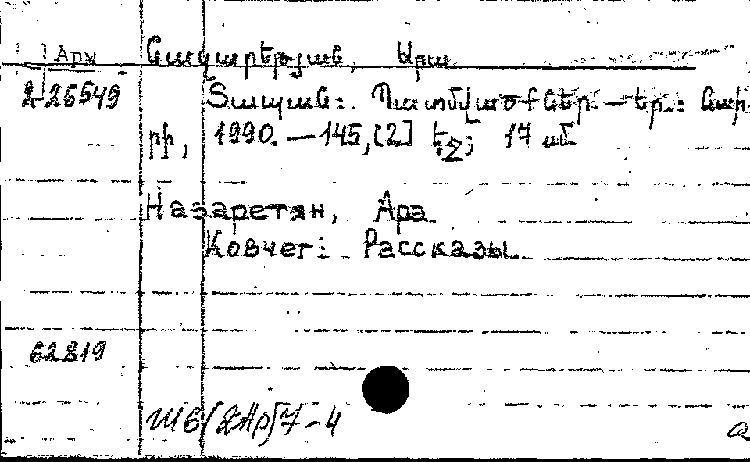 Арм Նազարեթյան, Արա
2 26549 Տապան: Պատմվածքներ. — Եր.: Նաի-
րի, 1990. — 145, [2] էջ; 17 սմ
Назаретян, Ара
Ковчег: Рассказы.
62819
Ш6(2Ар)7-4